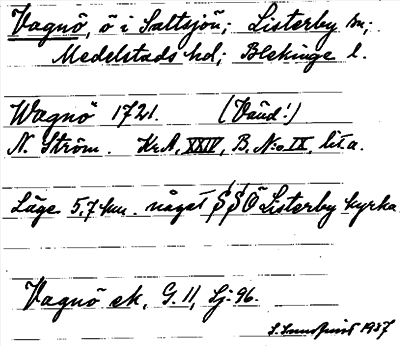 Vagnö, ö i Saltsjön; Listerby sn;
Medelstads hd; Blekinge l.
Wagnö 1721. (Vänd!)
N. Ström. Kr.A, XXIV, B. N:o IX, lit. a.
Läge 5,7 km. något S S Ö Listerby kyrka
Vagnö ek. G. 11, Sj. 96.
1937